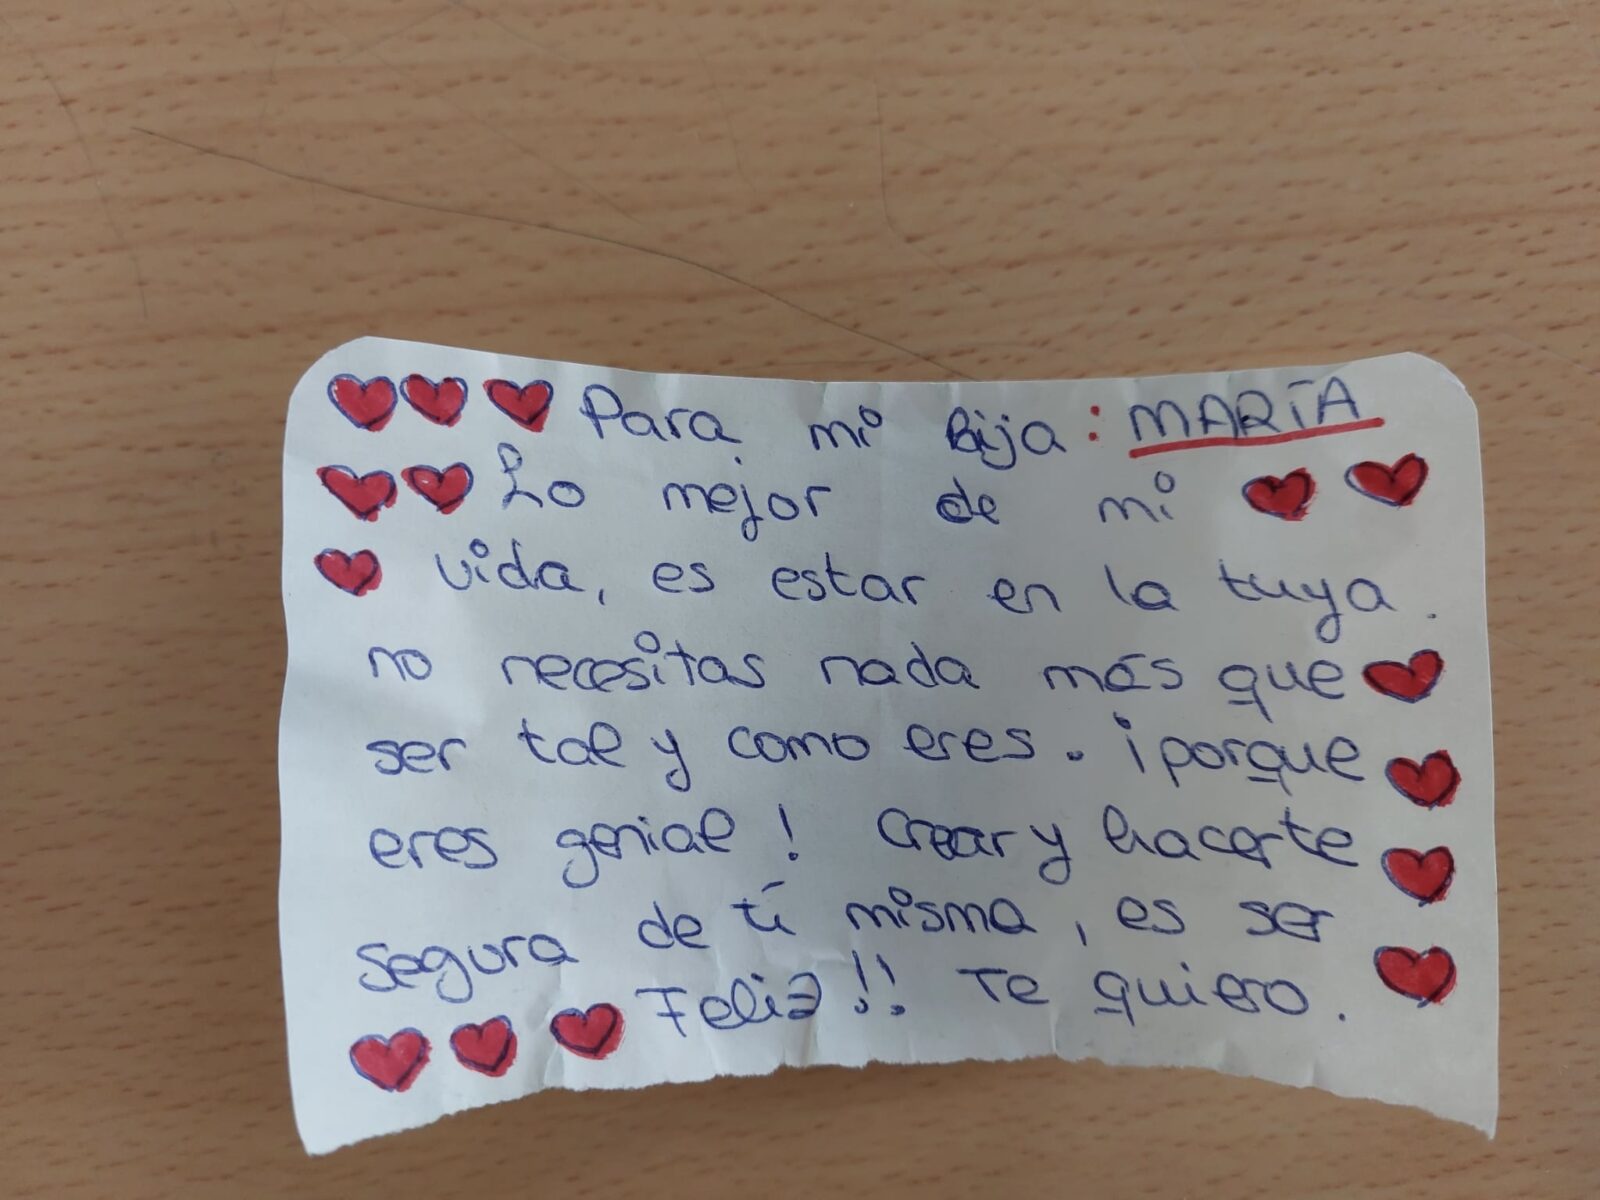 Para mi hija: MARÍA
Lo mejor de mi
vida, es estar en la tuya.
no necesitas nada más que
ser tal y como eres. ¡porque
eres genial! Crear y hacerte
segura de tí misma, es ser
Feliz!! Te quiero.